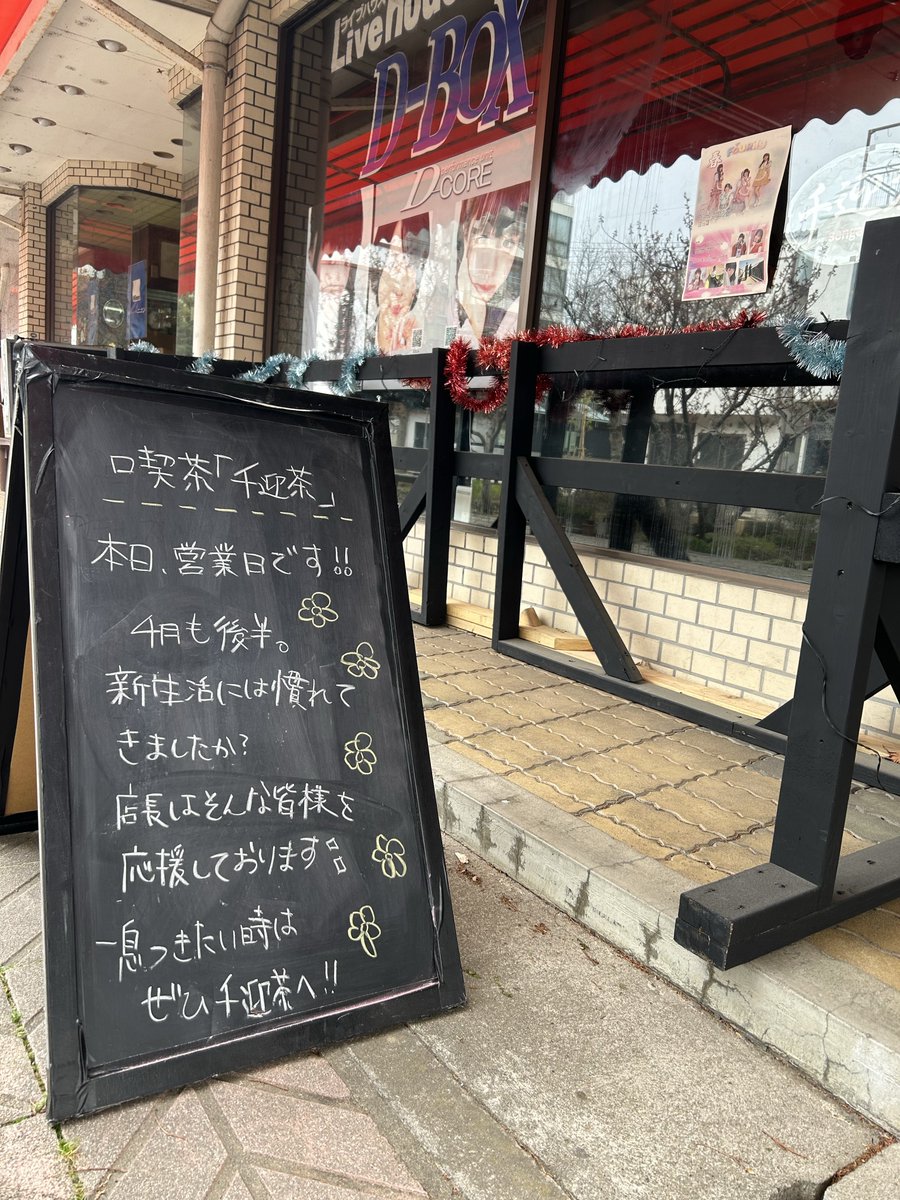 ライブハウス
Live house
D-BOX
D-CORE
口喫茶「千迎茶」
本日、営業日です!!
4月も後半。
新生活には慣れて
きましたか?
店長はそんな皆様を
応援しております!!
一息つきたい時は
ぜひ千迎茶へ!!